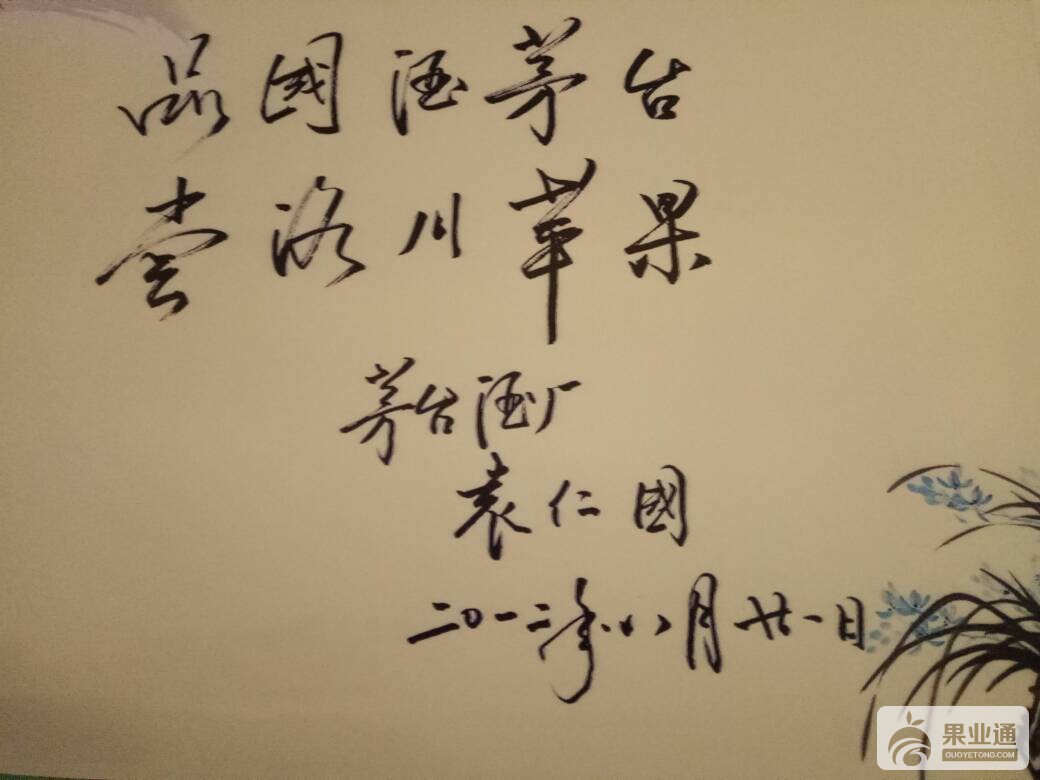 品國酒茅台
尝洛川苹果
茅台酒厂
袁仁國
二〇一二年八月廿一日
果业通
GUOYETONG.COM